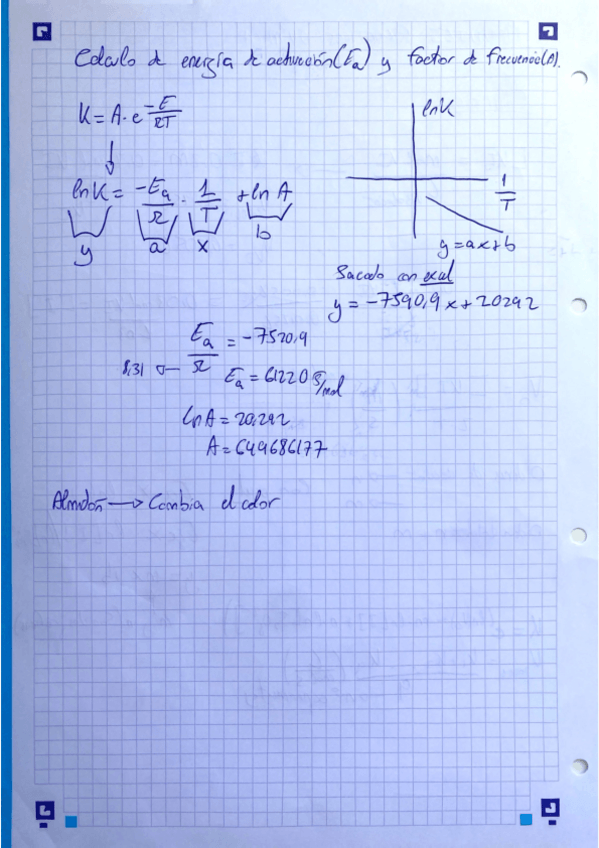 Calculo de energía de activación (Ea) y factor de frecuencia (A).
K = A · e^(-E/RT)
ln K
ln K = -Ea/R · 1/T + ln A
1/T
y a x b
y = ax + b
Sacado con excel
y = -7590,9 x + 20292
Ea/R = -7520,9
8,31
Ea = 61220 J/mol
ln A = 20,292
A = 649686177
Almidón → Cambia el color